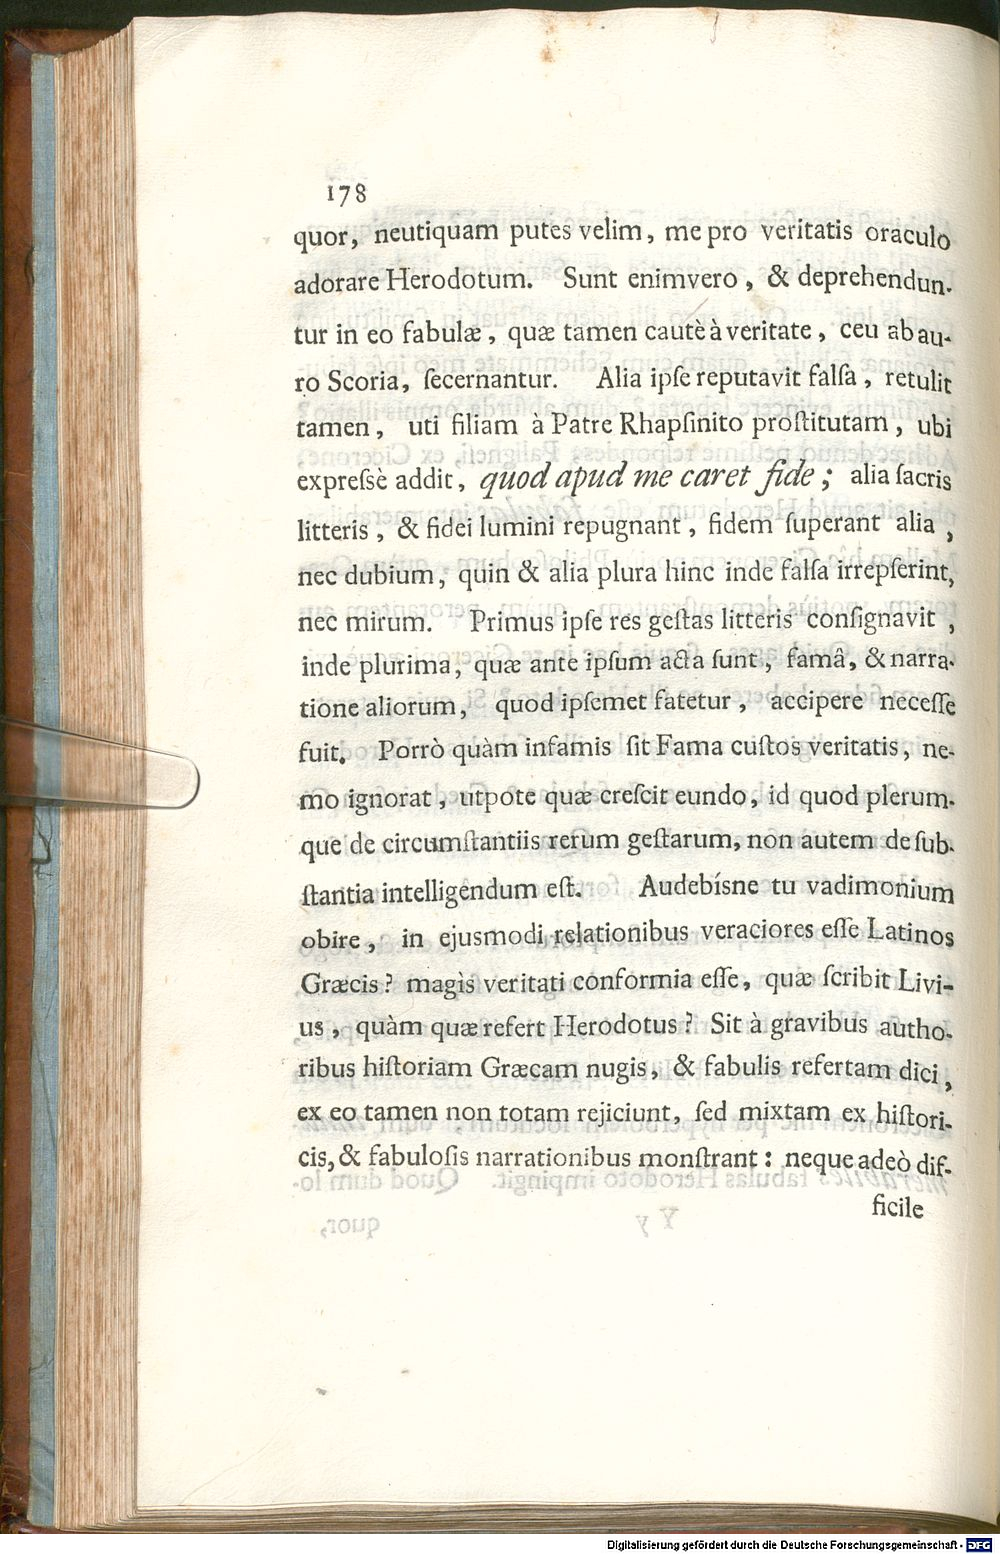 178
quor, neutiquam putes velim, me pro veritatis oraculo
adorare Herodotum. Sunt enimvero, & deprehendun-
tur in eo fabulæ, quæ tamen cautè à veritate, ceu ab au-
ro Scoria, ſecernantur. Alia ipſe reputavit falſa, retulit
tamen, uti filiam à Patre Rhapſinito proſtitutam, ubi
expreſsè addit, quod apud me caret fide; alia ſacris
litteris, & fidei lumini repugnant, fidem ſuperant alia,
nec dubium, quin & alia plura hinc inde falſa irrepſerint,
nec mirum. Primus ipſe res geſtas litteris conſignavit,
inde plurima, quæ ante ipſum acta ſunt, famâ, & narra-
tione aliorum, quod ipſemet fatetur, accipere neceſſe
fuit. Porrò quàm infamis ſit Fama cuſtos veritatis, ne-
mo ignorat, utpote quæ creſcit eundo, id quod plerum-
que de circumſtantiis rerum geſtarum, non autem de ſub-
ſtantia intelligendum eſt. Audebíſne tu vadimonium
obire, in ejusmodi relationibus veraciores eſſe Latinos
Græcis? magìs veritati conformia eſſe, quæ ſcribit Livi-
us, quàm quæ refert Herodotus? Sit à gravibus autho-
ribus hiſtoriam Græcam nugis, & fabulis refertam dici,
ex eo tamen non totam rejiciunt, ſed mixtam ex hiſtori-
cis, & fabuloſis narrationibus monſtrant: neque adeò dif-
ficile
Digitalisierung gefördert durch die Deutsche Forschungsgemeinschaft - DFG